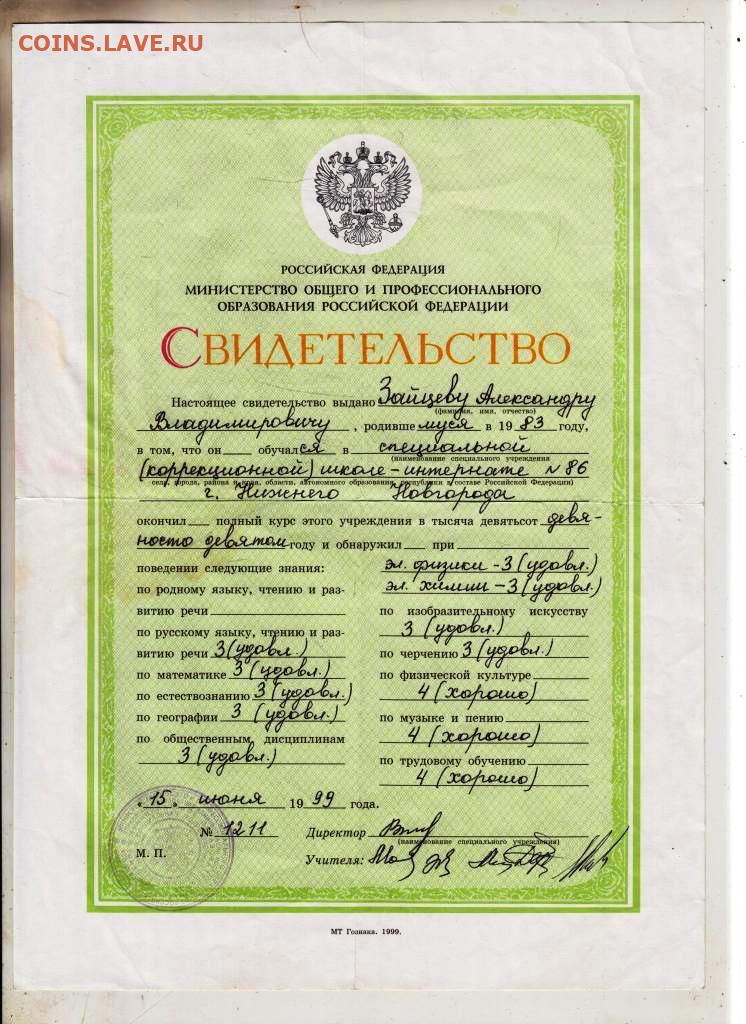 COINS.LAVE.RU
РОССИЙСКАЯ ФЕДЕРАЦИЯ
МИНИСТЕРСТВО ОБЩЕГО И ПРОФЕССИОНАЛЬНОГО
ОБРАЗОВАНИЯ РОССИЙСКОЙ ФЕДЕРАЦИИ
СВИДЕТЕЛЬСТВО
Настоящее свидетельство выдано Зайцеву Александру
(фамилия, имя, отчество)
Владимировичу, родившемуся в 1983 году,
в том, что он обучался в специальной
(наименование специального учреждения
(коррекционной) школе-интернате N 86
села, города, района и края, области, автономного образования, республики в составе Российской Федерации)
г. Нижнего Новгорода
окончил полный курс этого учреждения в тысяча девятьсот девя-
носто девятом году и обнаружил при
поведении следующие знания:
по родному языку, чтению и раз-
витию речи
по русскому языку, чтению и раз-
витию речи 3 (удовл.)
по математике 3 (удовл.)
по естествознанию 3 (удовл.)
по географии 3 (удовл.)
по общественным дисциплинам
3 (удовл.)
эл. физики - 3 (удовл.)
эл. химии - 3 (удовл.)
по изобразительному искусству
3 (удовл.)
по черчению 3 (удовл.)
по физической культуре
4 (хорошо)
по музыке и пению
4 (хорошо)
по трудовому обучению
4 (хорошо)
"15" июня 1999 года.
№ 1211 Директор
(наименование специального учреждения)
М. П. Учителя:
МТ Гознака. 1999.